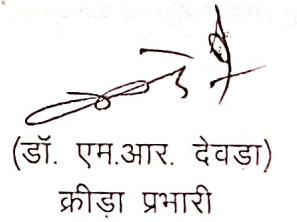 (डॉ. एम.आर. देवडा)
क्रीड़ा प्रभारी